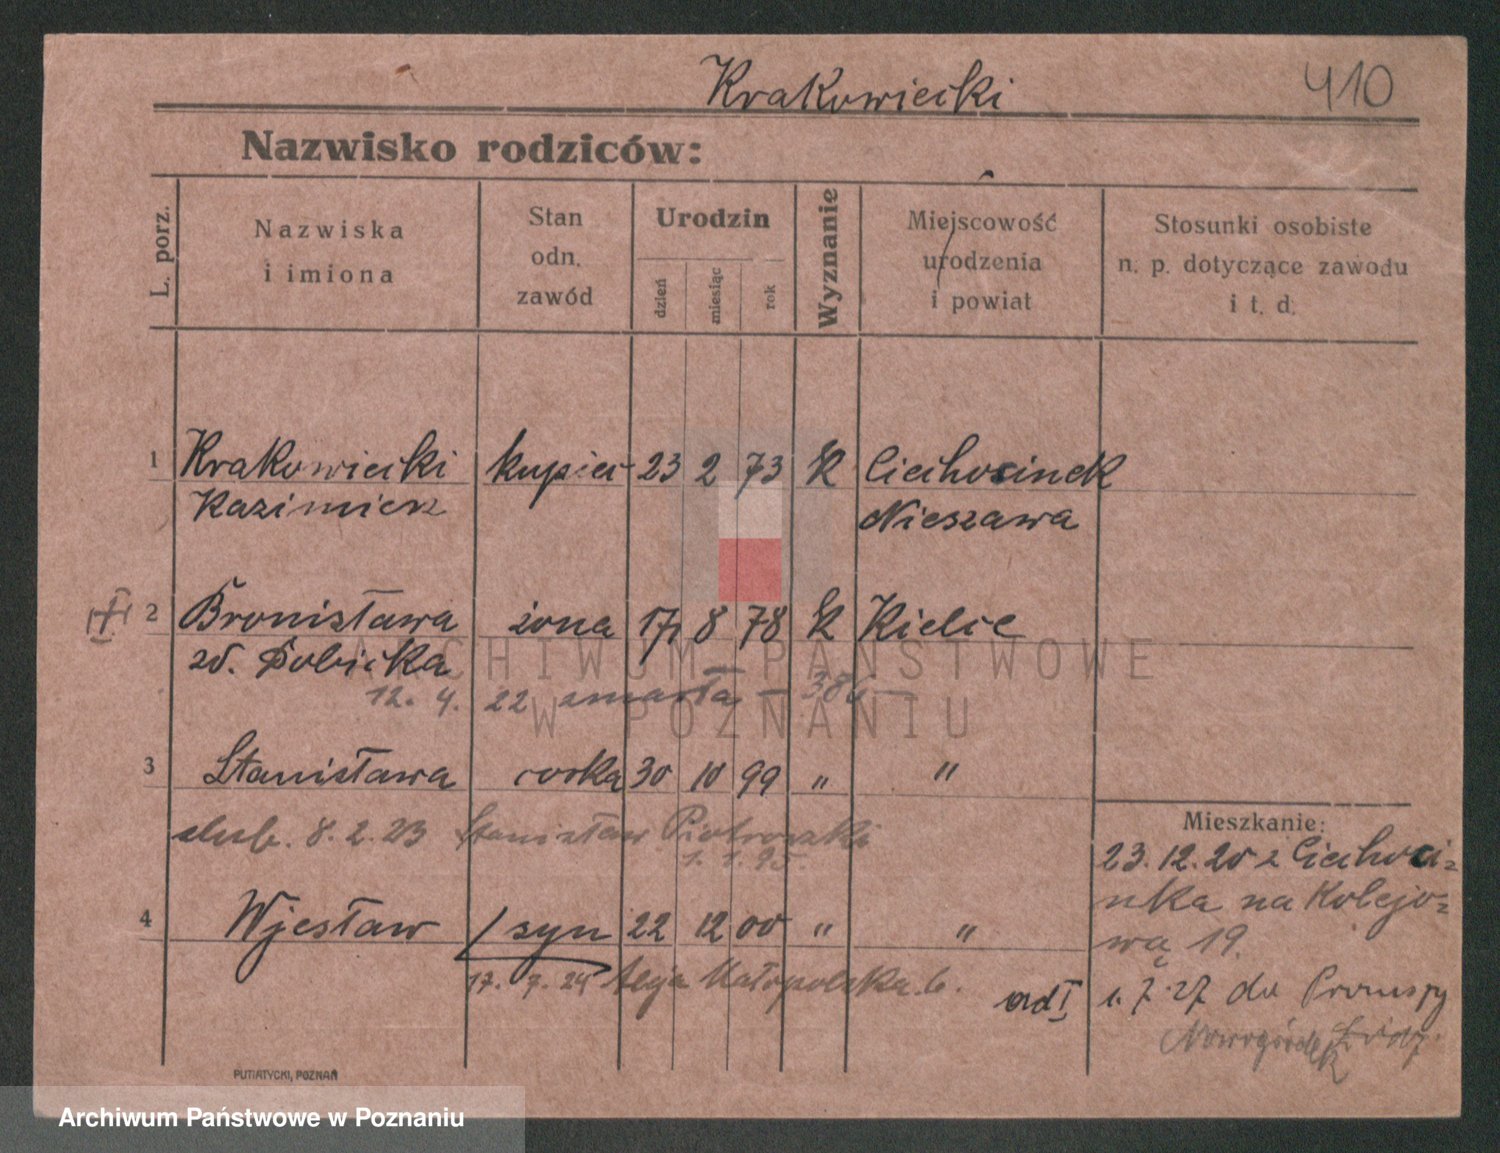 Krakowiecki 410
Nazwisko rodziców:
L. porz.
Nazwiska
i imiona
Stan
odn.
zawód
Urodzin
dzień
miesiąc
rok
Wyznanie
Miejscowość
urodzenia
i powiat
Stosunki osobiste
n. p. dotyczące zawodu
i t. d.
1 Krakowiecki kupiec 23 2 73 k Ciechocinek
Kazimierz Nieszawa
2 Bronisława żona 17 8 78 k Kielce
zd.
12. 4. 22 zmarła –
3 Stanisława córka 30 10 99 " "
ślub. 8.2.23 Stanisław Piotrowski
1. 1. 95.
4 Wjesław syn 22 12 00 " "
17. 7. 24 Aleja Małopolska 6.
ad I
Mieszkanie:
23.12.20 z Ciechoci=
nka na Kolejo=
wą 19.
1. 7. 27 do
PUTIATYCKI, POZNAŃ
ARCHIWUM PAŃSTWOWE
W POZNANIU
Archiwum Państwowe w Poznaniu